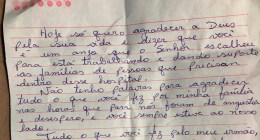 Hoje só quero agradecer a Deus
pela sua vida e dizer que você
é um anjo que o Senhor escolheu
para está trabalhando e dando suporte
as famílias de pessoas que precisam
dentro desse hospital.
Não tenho palavras para agradecer
tudo o que você fez por minha família
nas horas que para nós foram de angústia
e desespero, e você sempre esteve ao nosso
lado.
Tudo o que você fez pelo meu irmão,